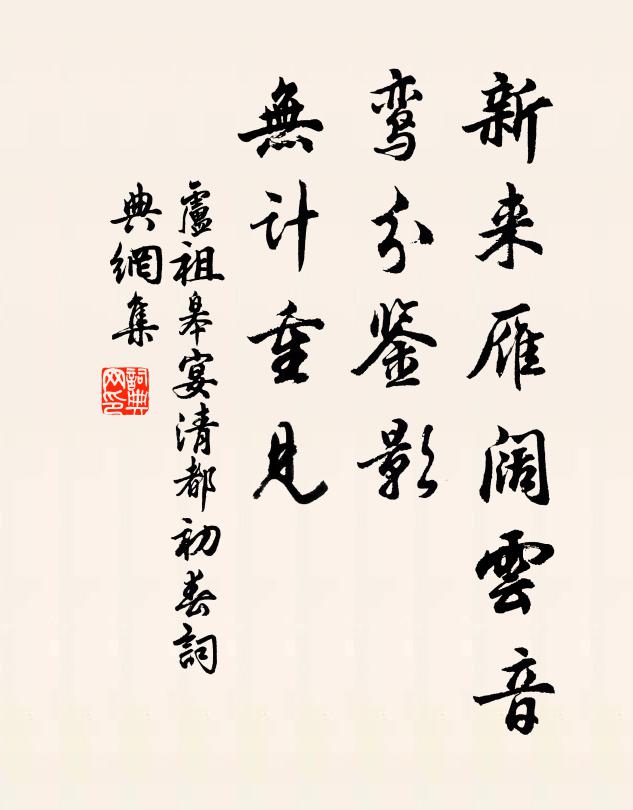 新来雁阔雲音
鸾分鉴影
無计重見
盧祖皋宴清都初春詞
典網集
詞典網印